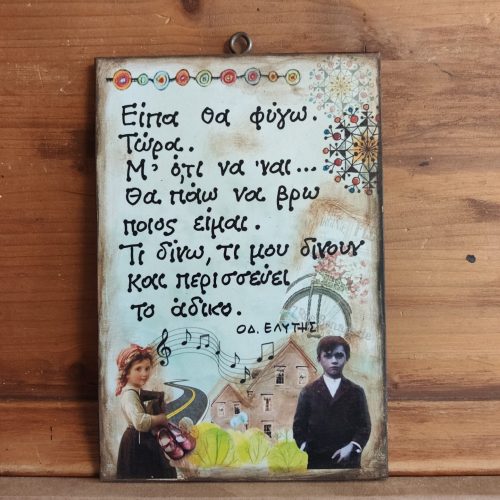 Είπα θα φύγω.
Τώρα.
Μ' ό,τι να 'ναι...
Θα πάω να βρω
ποιος είμαι.
Τι δίνω, τι μου δίνουν
και περισσεύει
το άδικο.
ΟΔ. ΕΛΥΤΗΣ